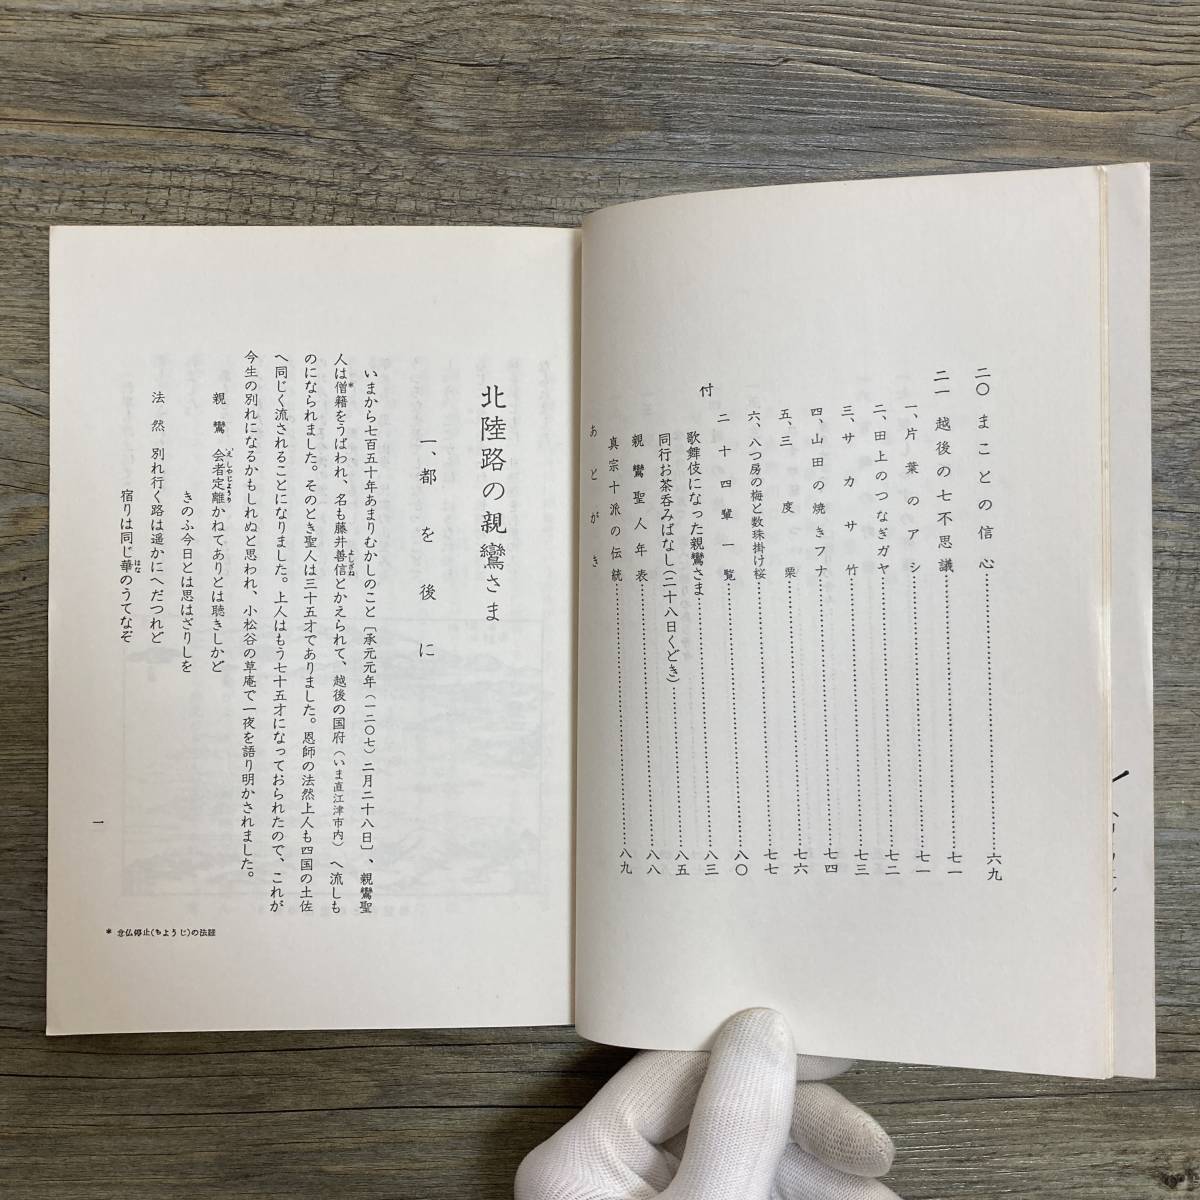 二〇 まことの信心……六九
二一 越後の七不思議……七一
一、片葉のアシ……七一
二、田上のつなぎガヤ……七二
三、サカサ竹……七三
四、山田の焼きフナ……七四
五、三度栗……七六
六、八つ房の梅と数珠掛け桜……七七
二十四輩一覧……八〇
付
歌舞伎になった親鸞さま……八三
同行お茶呑みばなし(二十八日くどき)……八五
親鸞聖人年表……八八
真宗十派の伝統……八九
あとがき
北陸路の親鸞さま
一、都を後に
いまから七百五十年あまりむかしのこと〔承元元年(一二〇七)二月二十八日〕、親鸞聖
人は僧籍*をうばわれ、名も藤井善信よしざねとかえられて、越後の国府(いま直江津市内)へ流しも
のになられました。そのとき聖人は三十五才でありました。恩師の法然上人も四国の土佐
へ同じく流されることになりました。上人はもう七十五才になっておられたので、これが
今生の別れになるかもしれぬと思われ、小松谷の草庵で一夜を語り明かされました。
親鸞 会者定離えしゃじょうりかねてありとは聴きしかど
きのふ今日とは思はざりしを
法然 別れ行く路は遥かにへだつれど
宿りは同じ華はなのうてなぞ
* 念仏停止(ちょうじ)の法難
一